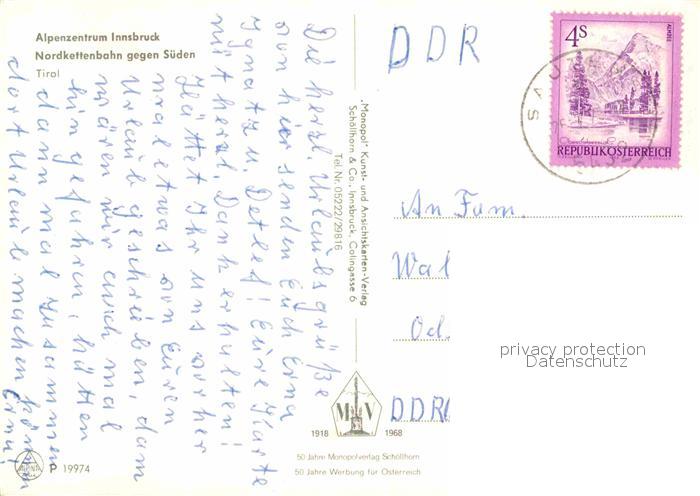 Alpenzentrum Innsbruck
Nordkettenbahn gegen Süden
Tirol
Die herzl. Urlaubsgrüße
von hier senden Euch Erna
Ignatz u. Detlef! Eure Karte
mit herzl. Dank erhalten!
Hättet Ihr uns vorher
mal etwas von Euren
Urlaub geschrieben, dann
wären wir auch mal
hin gefahren, hätten
dann mal zusammen
dort Urlaub machen können
„Monopol" Kunst- und Ansichtskarten-Verlag
Schöllhorn & Co., Innsbruck, Colingasse 6
Tel. Nr. 05222/29816
DDR
4S
ALMSEE
REPUBLIK ÖSTERREICH
An Fam.
Wal
Od.
DDR
privacy protection
Datenschutz
M V
1918 1968
50 Jahre Monopolverlag Schöllhorn
50 Jahre Werbung für Österreich
P 19974